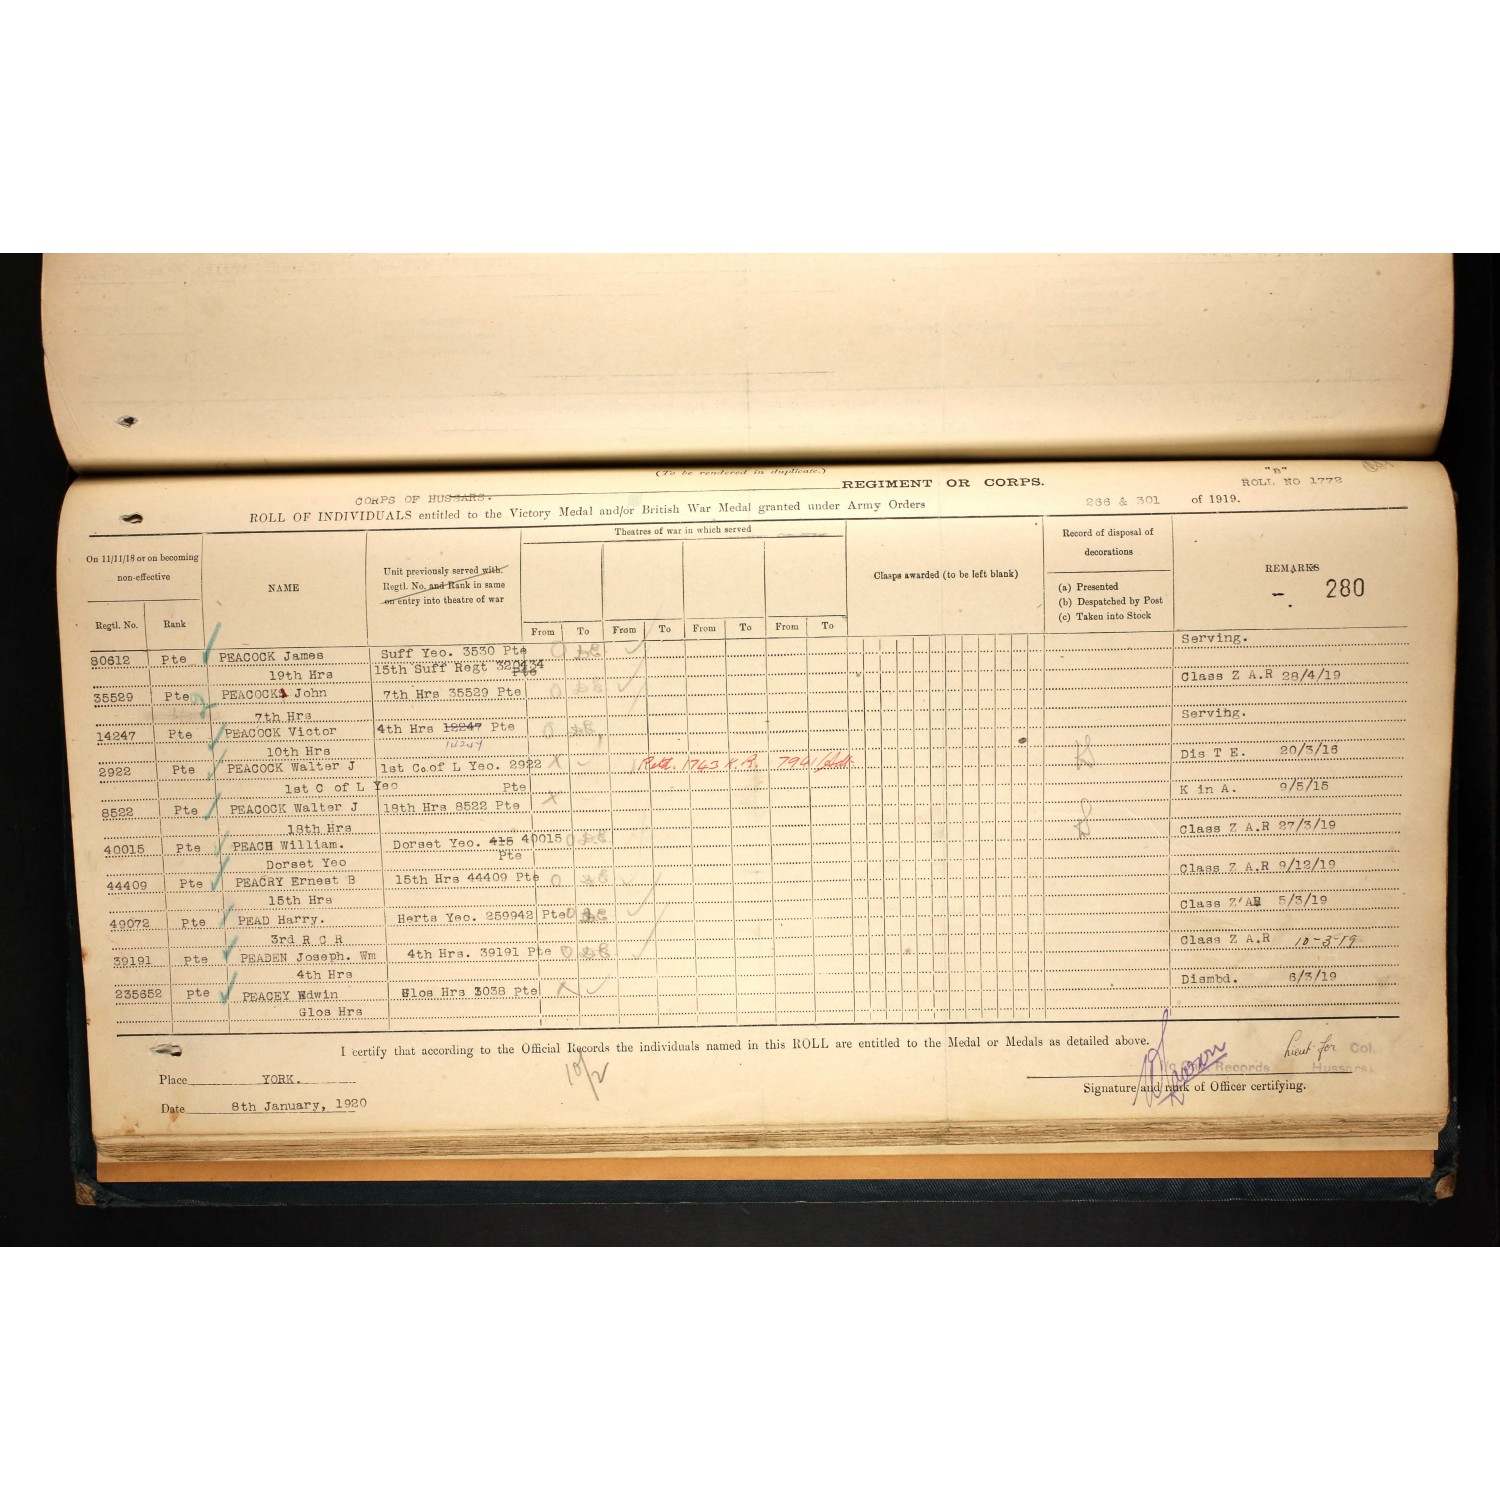 (To be rendered in duplicate.)
"B"
CORPS OF HUSSARS. REGIMENT OR CORPS. ROLL NO 1772
ROLL OF INDIVIDUALS entitled to the Victory Medal and/or British War Medal granted under Army Orders 266 & 301 of 1919.
On 11/11/18 or on becoming non-effective
Regtl. No.
Rank
NAME
Unit previously served with.
Regtl. No. and Rank in same
on entry into theatre of war
Theatres of war in which served
From To From To From To From To
Clasps awarded (to be left blank)
Record of disposal of
decorations
(a) Presented
(b) Despatched by Post
(c) Taken into Stock
REMARKS
280
80612 Pte PEACOCK James Suff Yeo. 3530 Pte Serving.
19th Hrs 15th Suff Regt 320434 Pte
35529 Pte PEACOCK John 7th Hrs 35529 Pte Class Z A.R 28/4/19
7th Hrs
14247 Pte PEACOCK Victor 4th Hrs 12247 Pte Serving.
10th Hrs 14247
2922 Pte PEACOCK Walter J 1st Co.of L Yeo. 2922 Dis T E. 20/3/16
1st C of L Yeo Pte
8522 Pte PEACOCK Walter J 18th Hrs 8522 Pte K in A. 9/5/15
18th Hrs
40015 Pte PEACH William. Dorset Yeo. 415 40015 Class Z A.R 27/3/19
Dorset Yeo Pte
44409 Pte PEACRY Ernest B 15th Hrs 44409 Pte Class Z A.R 9/12/19
15th Hrs
49072 Pte PEAD Harry. Herts Yeo. 259942 Pte Class Z AR 5/3/19
3rd R C R
39191 Pte PEADEN Joseph. Wm 4th Hrs. 39191 Pte Class Z A.R 10-3-19
4th Hrs
235652 Pte PEACEY Edwin Glos Hrs 3038 Pte Dismbd. 6/3/19
Glos Hrs
I certify that according to the Official Records the individuals named in this ROLL are entitled to the Medal or Medals as detailed above.
Place YORK.
Lieut for Col.
Records Hussars
Date 8th January, 1920
Signature and rank of Officer certifying.